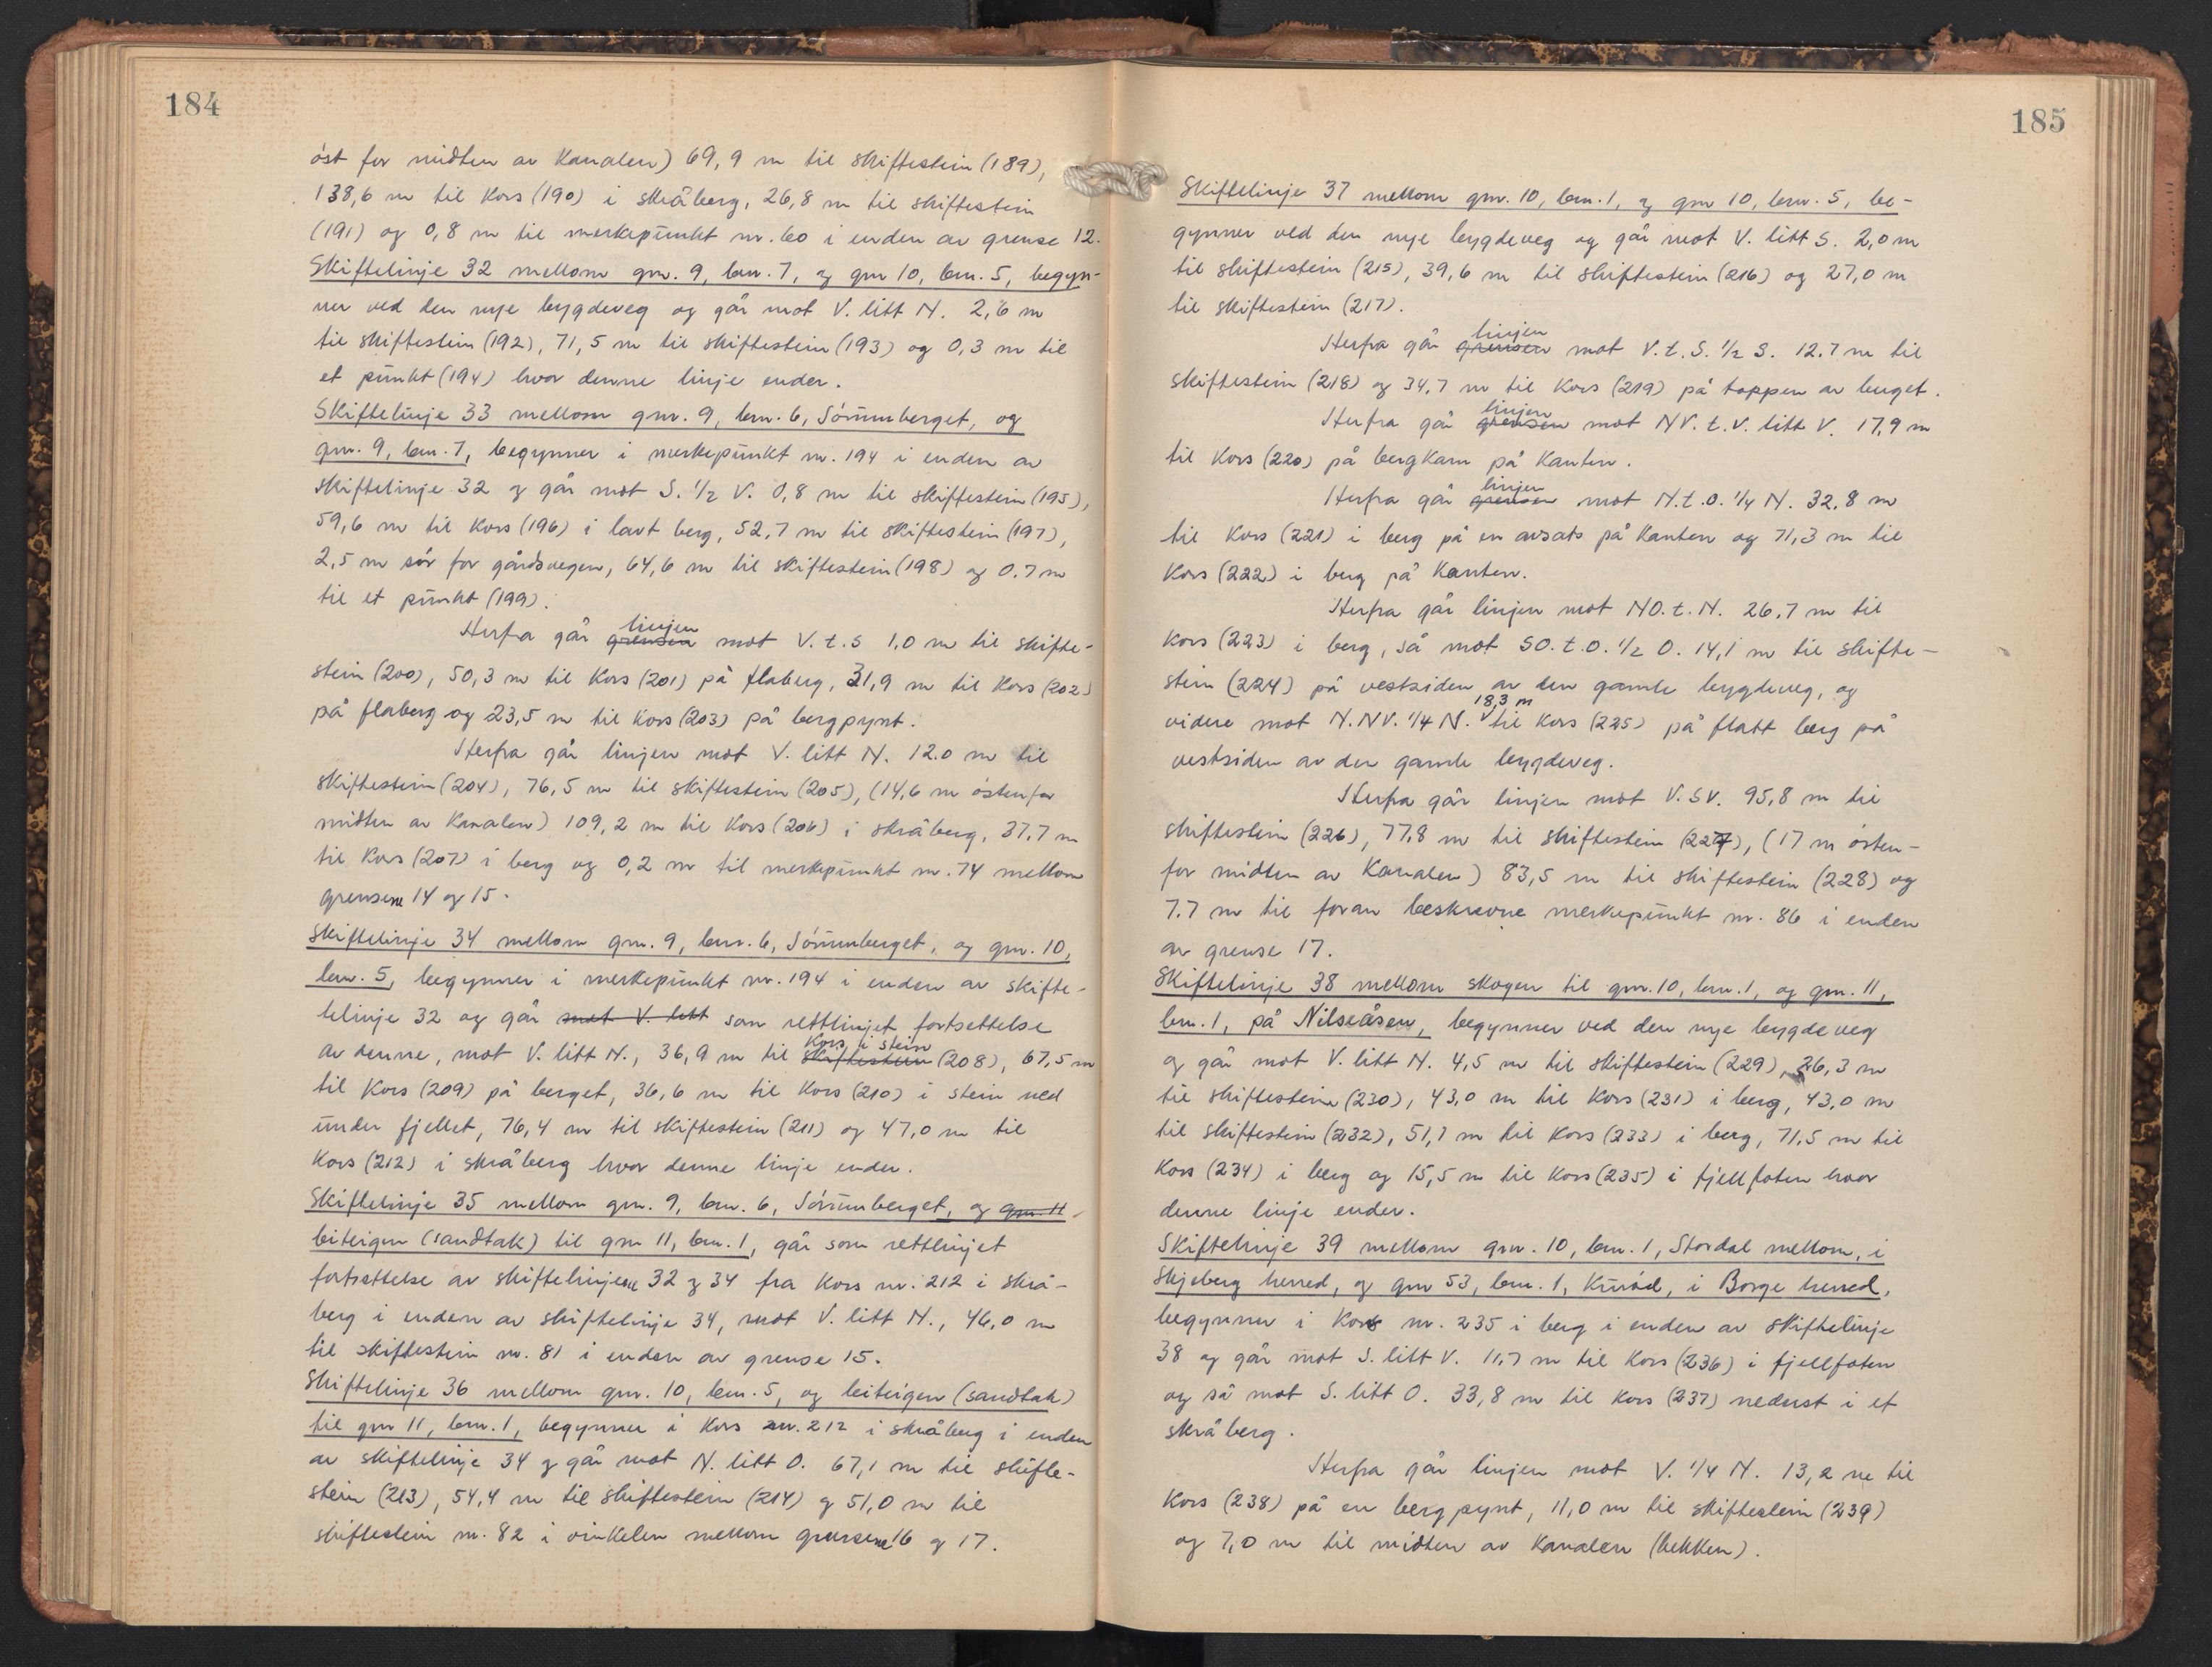 184
øst for midten av Kanalen) 69,9 m til skiftestein (189),
138,6 m til Kors (190) i skråberg, 26,8 m til skiftestein
(191) og 0,8 m til merkepunkt nr. 60 i enden av grense 12.
Skiftelinje 32 mellom gnr. 9, bnr. 7, og gnr 10, bnr. 5, begyn-
ner ved den nye bygdeveg og går mot V. litt N. 2,6 m
til skiftestein (192), 71,5 m til skiftestein (193) og 0,3 m til
et punkt (194) hvor denne linje ender.
Skiftelinje 33 mellom gnr. 9, bnr. 6, Sørumberget, og
gnr. 9, bnr. 7, begynner i merkepunkt nr. 194 i enden av
skiftelinje 32 og går mot S. 1/2 V. 0,8 m til skiftestein (195),
59,6 m til Kors (196) i lavt berg, 52,7 m til skiftestein (197),
2,5 m sør for gårdsvegen, 64,6 m til skiftestein (198) og 0.7 m
til et punkt (199).
Herfra går grensen linjen mot V. t. S 1,0 m til skifte-
stein (200), 50,3 m til Kors (201) på flaberg, 31,9 m til Kors (202)
på flaberg og 23,5 m til Kors (203) på bergpynt.
Herfra går linjen mot V. litt N. 12.0 m til
skiftestein (204), 76,5 m til skiftestein (205), (14,6 m østenfor
midten av Kanalen) 109,2 m til Kors (206) i skråberg, 37.7 m
til Kors (207) i berg og 0,2 m til merkepunkt nr. 74 mellom
grensene 14 og 15.
Skiftelinje 34 mellom gnr. 9, bnr. 6, Sørumberget, og gnr. 10,
bnr. 5, begynner i merkepunkt nr. 194 i enden av skifte-
telinje 32 og går mot V. litt som rettlinjet fortsettelse
av denne, mot V. litt N., 36,9 m til skiftestein Kors i stein (208), 67,5 m
til Kors (209) på berget, 36,6 m til Kors (210) i stein ned
under fjellet, 76,4 m til skiftestein (211) og 47,0 m til
Kors (212) i skråberg hvor denne linje ender.
Skiftelinje 35 mellom gnr. 9, bnr. 6, Sørumberget, og gnr. 11
beiteigen (sandtak) til gnr 11, bnr. 1, går som rettlinjet
fortsettelse av skiftelinjene 32 og 34 fra Kors nr. 212 i skrå-
berg i enden av skiftelinje 34, mot V. litt N., 46,0 m
til skiftestein nr. 81 i enden av grense 15.
Skiftelinje 36 mellom gnr. 10, bnr. 5, og beiteigen (sandtak)
til gnr 11, bnr. 1, begynner i Kors nr. 212 i skråberg i enden
av skiftelinje 34 og går mot N. litt O. 67,1 m til skifte-
stein (213), 54,4 m til skiftestein (214) og 51,0 m til
skiftestein nr. 82 i vinkelen mellom grensene 16 og 17.
185
Skiftelinje 37 mellom gnr. 10, bnr. 1, og gnr 10, bnr. 5, be-
gynner ved den nye bygdeveg og går mot V. litt S. 2,0 m
til skiftestein (215), 39,6 m til skiftestein (216) og 27,0 m
til skiftestein (217).
Herfra går grensen linjen mot V. t. S. 1/2 S. 12.7 m til
skiftestein (218) og 34,7 m til Kors (219) på toppen av berget.
Herfra går grensen linjen mot NV. t. V. litt V. 17,9 m
til Kors (220) på bergkam på Kanten.
Herfra går grensen linjen mot N. t. O. 1/4 N. 32,8 m
til Kors (221) i berg på en avsats på Kanten og 71,3 m til
Kors (222) i berg på Kanten.
Herfra går linjen mot NO. t. N. 26,7 m til
Kors (223) i berg, så mot SO. t. O. 1/2 O. 14,1 m til skifte-
stein (224) på vestsiden av den gamle bygdeveg, og
videre mot N. NV. 1/4 N. 18,3 m til Kors (225) på flatt berg på
vestsiden av den gamle bygdeveg.
Herfra går linjen mot V. SV. 95,8 m til
skiftestein (226), 77,8 m til skiftestein (227), (17 m østen-
for midten av Kanalen) 83,5 m til skiftestein (228) og
7.7 m til foran beskrevne merkepunkt nr. 86 i enden
av grense 17.
Skiftelinje 38 mellom skogen til gnr. 10, bnr. 1, og gnr. 11,
bnr. 1, på Nilseåsen, begynner ved den nye bygdeveg
og går mot V. litt N. 4,5 m til skiftestein (229), 26,3 m
til skiftestein (230), 43,0 m til Kors (231) i berg, 43,0 m
til skiftestein (232), 51,7 m til Kors (233) i berg, 71,5 m til
Kors (234) i berg og 15,5 m til Kors (235) i fjellfoten hvor
denne linje ender.
Skiftelinje 39 mellom gnr. 10, bnr. 1, Stordal mellom, i
Skjeberg herred, og gnr 53, bnr. 1, Kurød, i Borge herred,
begynner i Kors nr. 235 i berg i enden av skiftelinje
38 og går mot S. litt V. 11,7 m til Kors (236) i fjellfoten
og så mot S. litt O. 33,8 m til Kors (237) nederst i et
skråberg.
Herfra går linjen mot V. 1/4 N. 13,2 m til
Kors (238) på en bergpynt, 11,0 m til skiftestein (239)
og 7,0 m til midten av Kanalen (bekken).